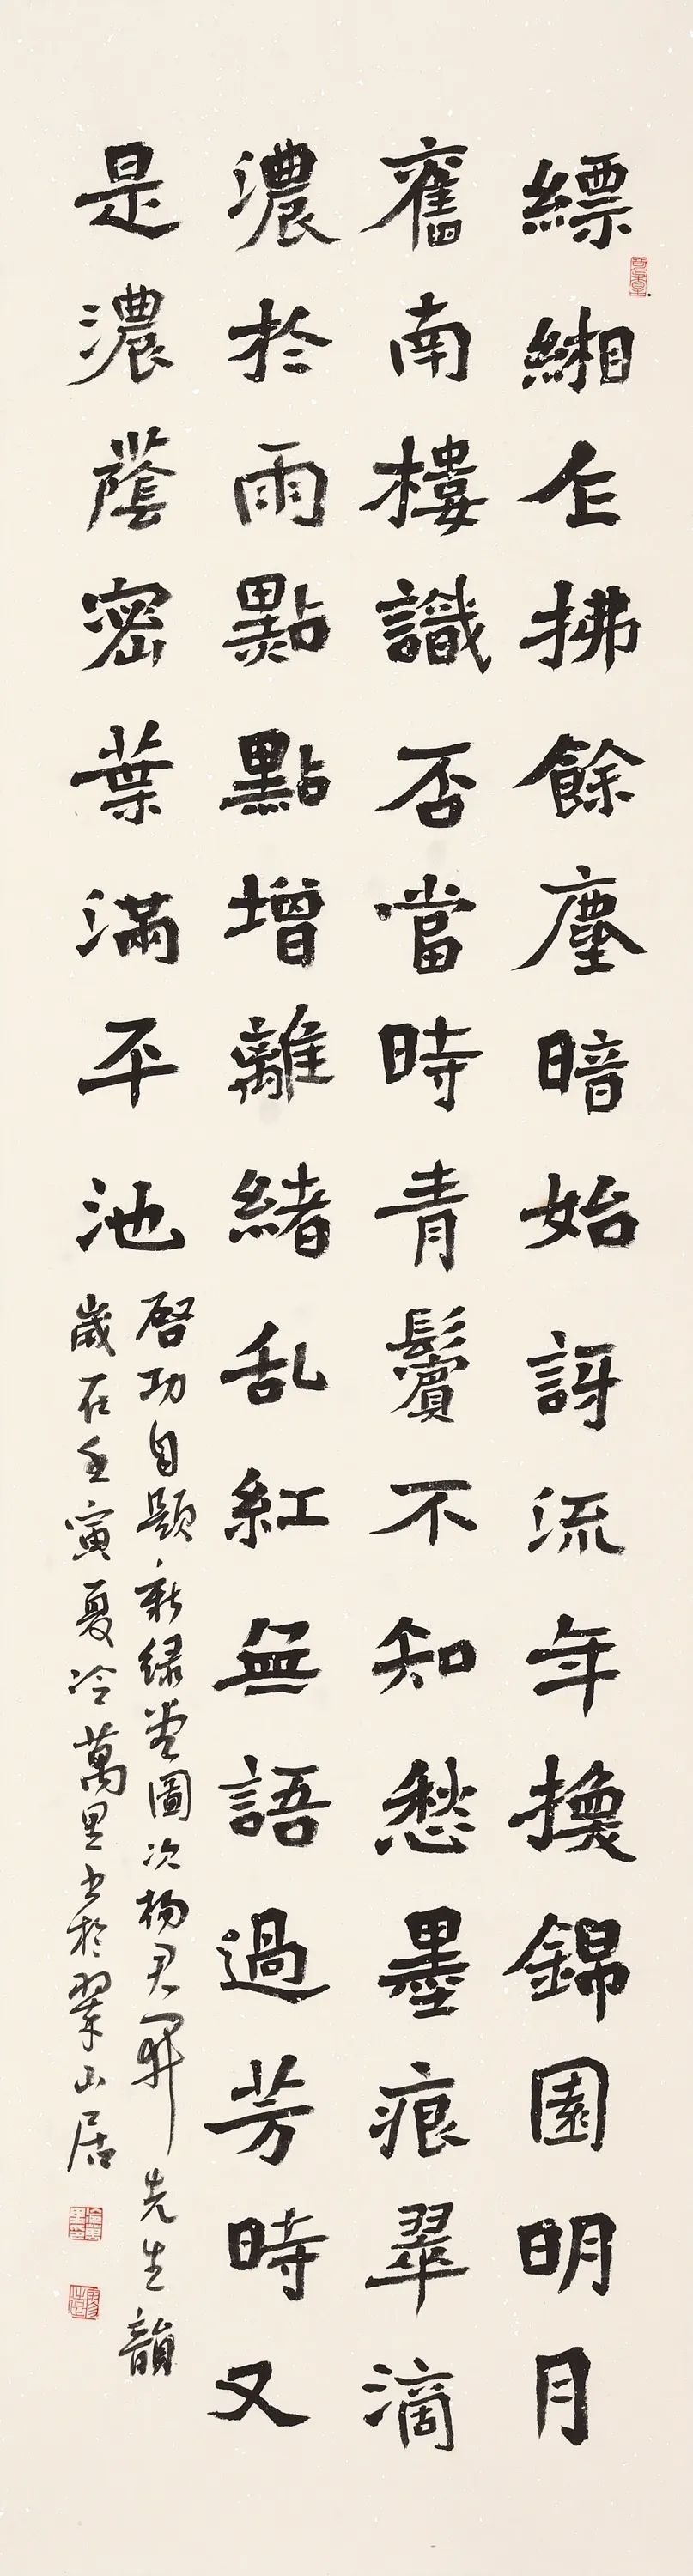 縹緗乍拂餘塵暗始訝流年換錦園明月
舊南樓識否當時青鬢不知愁墨痕翠滴
濃於雨點點增離緒亂紅無語過芳時又
是濃蔭密葉滿平池
啓功自題新绿堂圖次楊君昇先生韻
歲在壬寅夏冷萬里書於翠山居